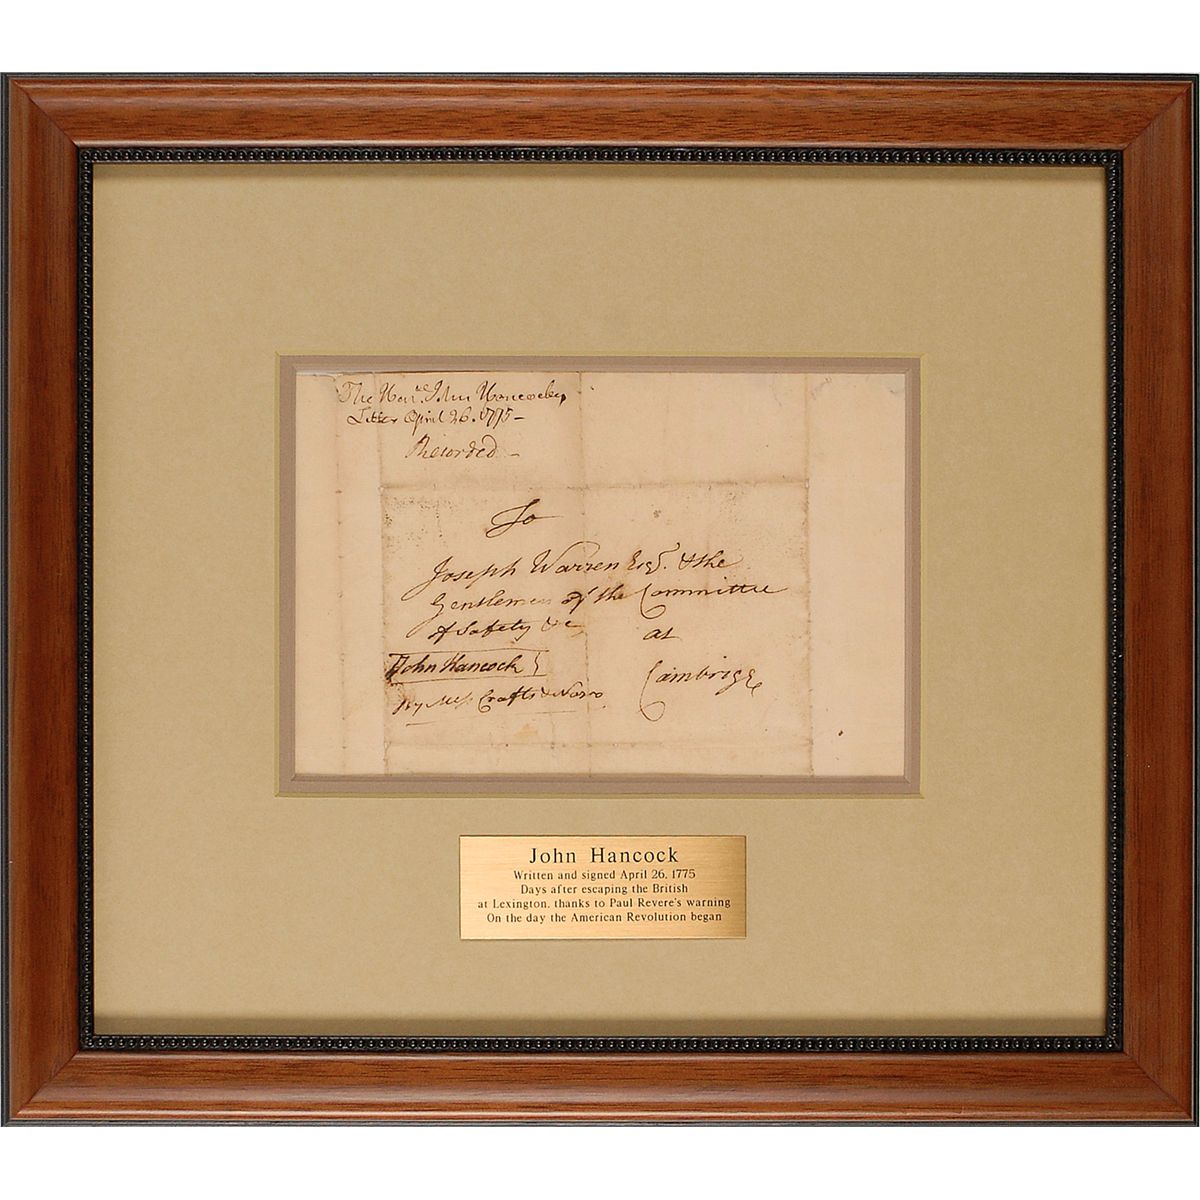 The Hon.ble John Hancocks
Letter April 26. 1775-
Recorded -
To
Joseph Warren Esqr. & the
Gentlemen of the Committee
of Safety &c
at
John Hancock
Cambridge
By Mess Crafts &
John Hancock
Written and signed April 26, 1775
Days after escaping the British
at Lexington, thanks to Paul Revere's warning
On the day the American Revolution began